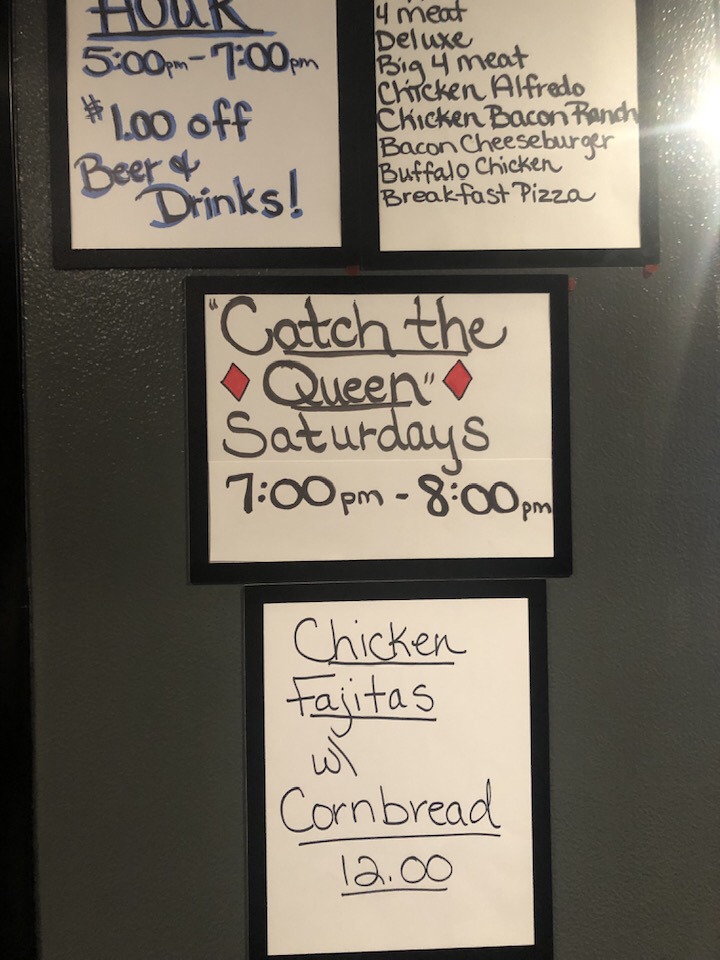 HOUR
5:00pm - 7:00pm
$1.00 off
Beer &
Drinks!
4 meat
Deluxe
Big 4 meat
Chicken Alfredo
Chicken Bacon Ranch
Bacon Cheeseburger
Buffalo Chicken
Breakfast Pizza
"Catch the
Queen"
Saturdays
7:00pm - 8:00pm
Chicken
Fajitas
w/
Cornbread
12.00